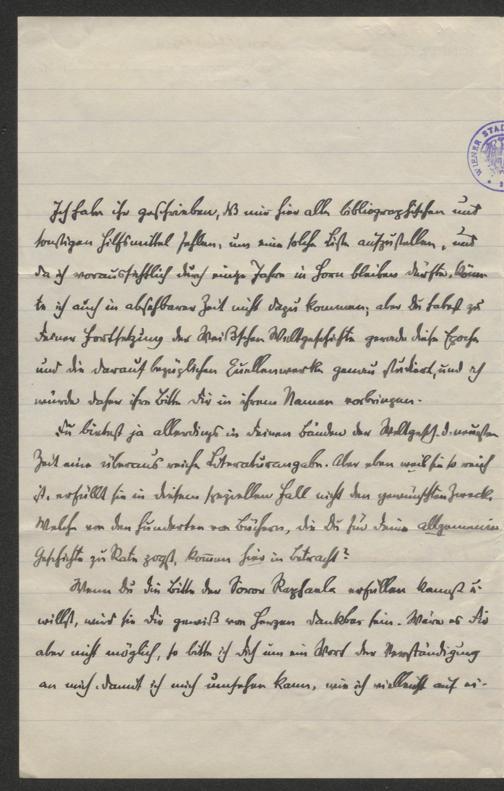 WIENER STAD
Ich habe ihr geschrieben, daß mir hier alle bibliographischen und
sonstigen Hilfsmittel fehlen, um eine solche Liste aufzustellen, und
da ich voraussichtlich durch einige Jahre in Horn bleiben dürfte, könn-
te ich auch in absehbarer Zeit nicht dazu kommen; aber du habest zu
deiner Fortsetzung der Weißschen Weltgeschichte gerade diese Epoche
und die darauf bezüglichen Quellenwerke genau studiert, und ich
würde daher ihre Bitte dir in ihrem Namen vorbringen.
Du bietest ja allerdings in deinen Bänden der Weltgesch. d. neuesten
Zeit eine überaus reiche Literaturangabe. Aber eben weil sie so reich
ist, erfüllt sie in diesem speziellen Fall nicht den gewünschten Zweck.
Welche von den Hunderten von Büchern, die du für deine allgemeine
Geschichte zu Rate zogst, kommen hier in Betracht?
Wenn du die Bitte der Soror Raphaela erfüllen kannst u.
willst, wird sie dir gewiß von Herzen dankbar sein. Wäre es dir
aber nicht möglich, so bitte ich dich um ein Wort der Verständigung
an mich, damit ich mich umsehen kann, wie ich vielleicht auf ei-